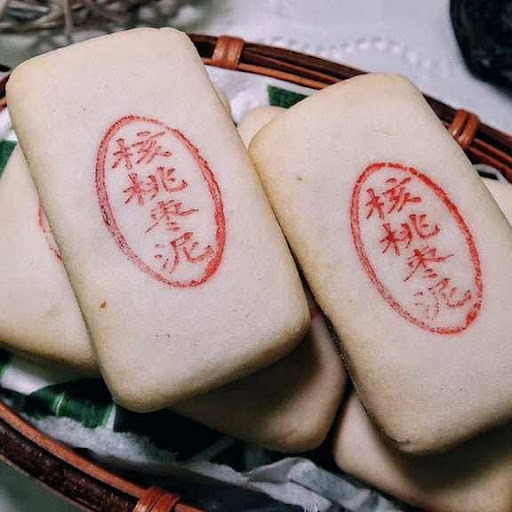 核桃枣泥
核桃枣泥